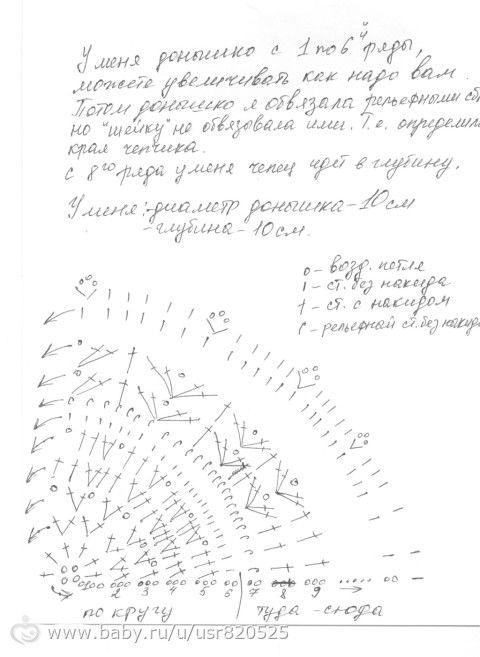 У меня донышко с 1 по 6й ряды,
можете увеличивать как надо вам.
Потом донышко я обвязала рельефными ст
но "шейку" не обвязывала ими. Т.е. определила
края чепчика.
с 8го ряда у меня чепец идёт в глубину.
У меня: - диаметр донышка - 10 см
- глубина - 10 см.
о - возд. петля
ı - ст. без накида
† - ст. с накидом
с - рельефный ст. без накид
1 2 3 4 5 6 7 8 9
по кругу
туда - сюда
www.baby.ru/u/usr820525